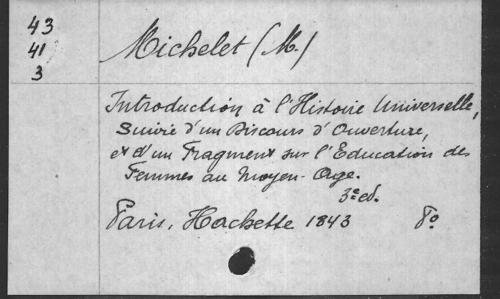 43
41
3
Michelet (M.)
Introduction à l'Histoire Universelle,
Suivie d'un Discours d'Ouverture,
et d'un Fragment sur l'Education des
Femmes au Moyen-Age.
3e ed.
Paris, Hachette 1843 8o